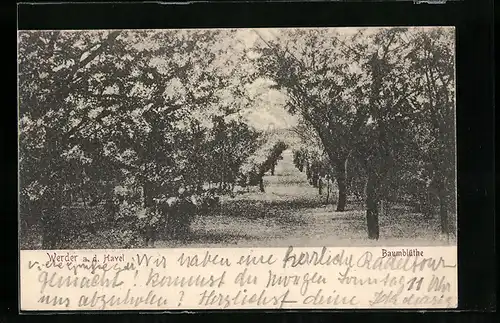 Werder a. d. Havel
Baumblüthe
Wir haben eine herrliche Radeltour
gemacht! kommst du morgen Sonntag 11 Uhr
uns abzuholen? Herzlichst deine